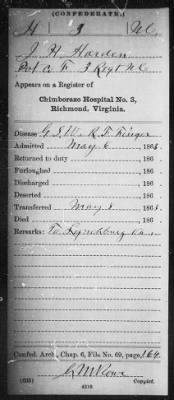 (CONFEDERATE.)
H 3 N.C.
J. H. Harden
Pvt Co. K. 3 Regt N.C.
Appears on a Register of
Chimborazo Hospital No. 3,
Richmond, Virginia.
Disease G.S.W. R. F. Finger
Admitted May 6, 1863.
Returned to duty , 186 .
Furloughed , 186 .
Discharged , 186 .
Deserted , 186 .
Transferred May 8, 1863.
Died , 186 .
Remarks: To Lynchburg Va
Confed. Arch., Chap. 6, File No. 69, page 164
G. M. Rowe
(635) Copyist.